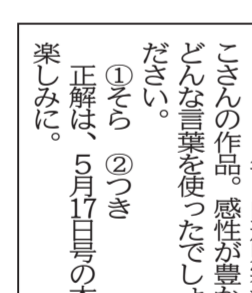 こさんの作品。感性が豊か
どんな言葉を使ったでしょ
ださい。
①そら ②つき
正解は、5月17日号の本
楽しみに。